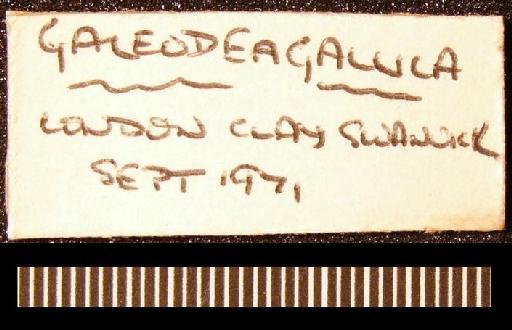 GALEODEA GALLULA
LONDON CLAY SWANWICK
SEPT 1971